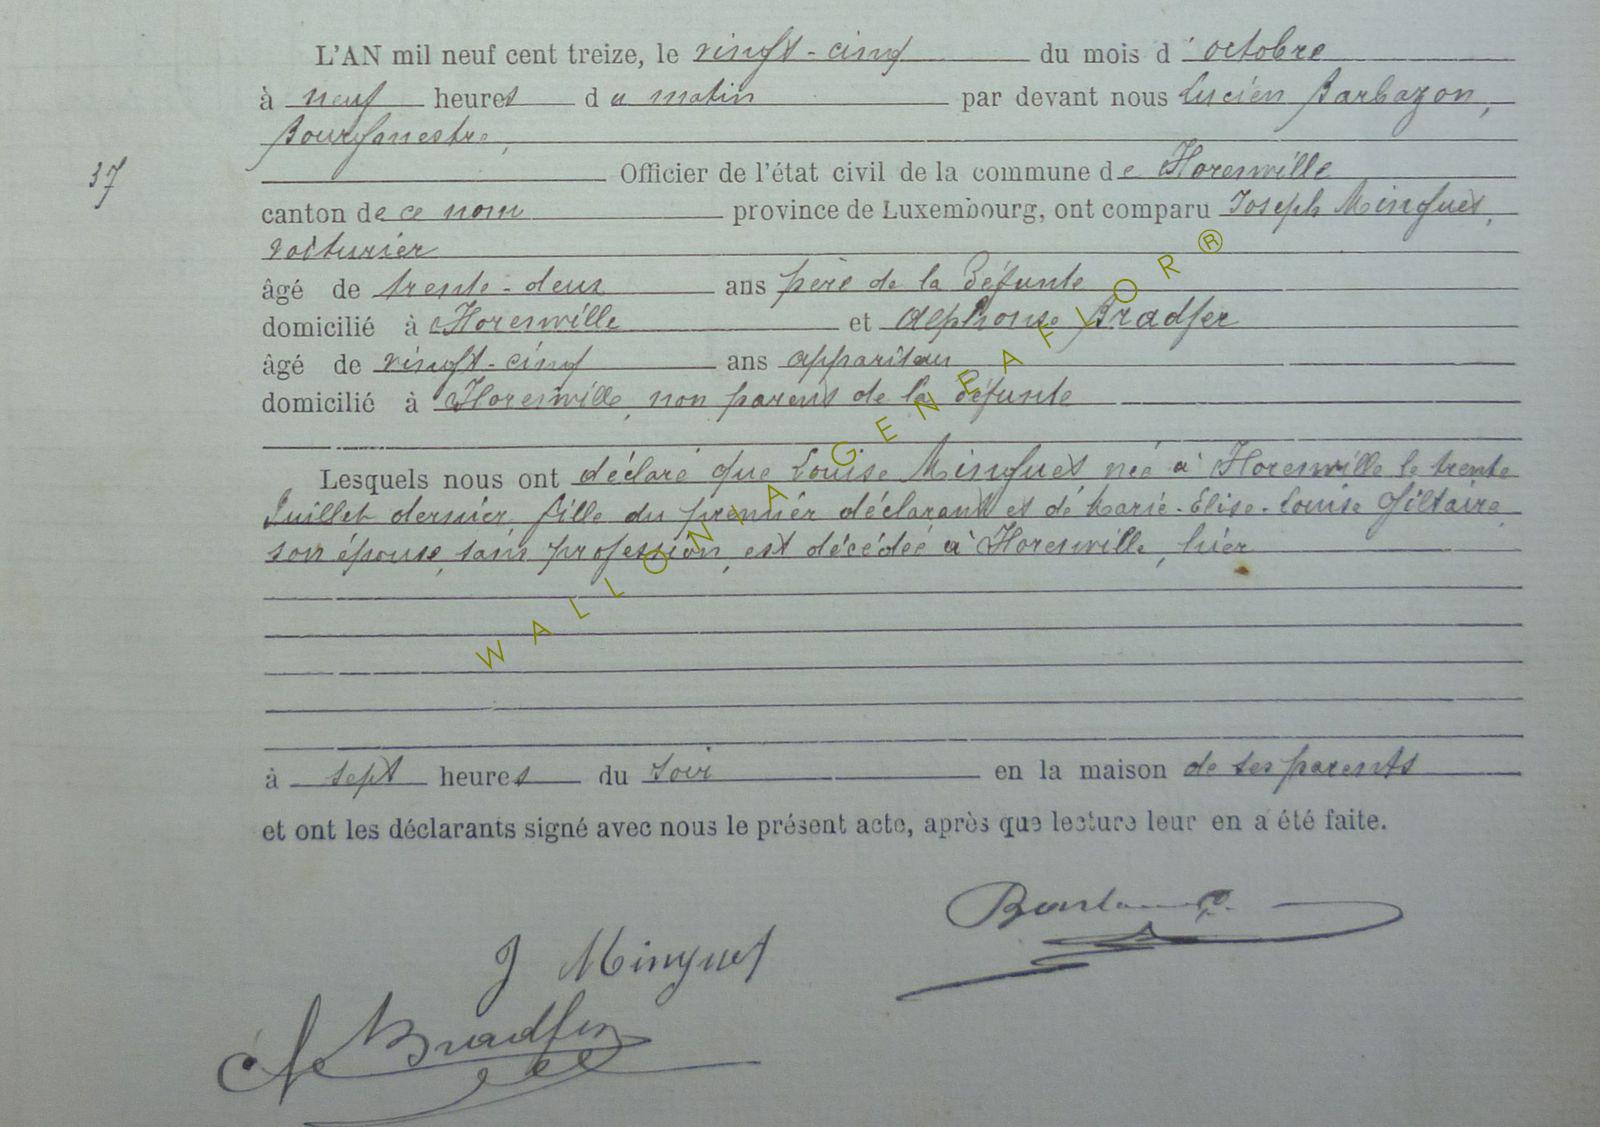 L'AN mil neuf cent treize, le vingt-cinq du mois d'octobre
à neuf heures du matin par devant nous Lucien Barbazon,
Bourgmestre,
37
Officier de l'état civil de la commune de Florenville
canton de ce nom province de Luxembourg, ont comparu Joseph Minguet,
voiturier
âgé de trente-deux ans père de la défunte
domicilié à Florenville et Alphonse Bradfer
âgé de vingt-cinq ans appariteur
domicilié à Florenville, non parent de la défunte
Lesquels nous ont déclaré que Louise Minguet née à Florenville le trente
Juillet dernier, fille du premier déclarant et de Marie-Elise-Louise Giltaire
son épouse, sans profession, est décédée à Florenville, hier
à sept heures du soir en la maison de ses parents
et ont les déclarants signé avec nous le présent acte, après que lecture leur en a été faite.
J Minguet
A Bradfer
WALLONIA GENEAFLOR®